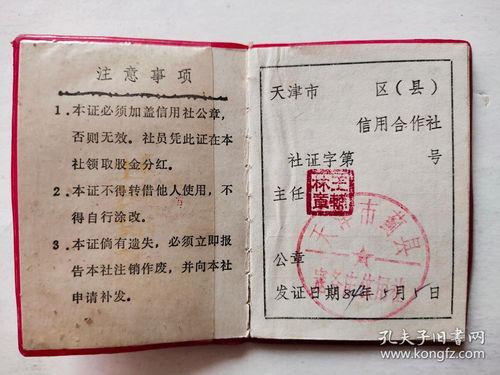 注意事项
1．本证必须加盖信用社公章，
否则无效。社员凭此证在本
社领取股金分红。
2．本证不得转借他人使用，不
得自行涂改。
3．本证倘有遗失，必须立即报
告本社注销作废，并向本社
申请补发。
天津市 区（县）
信用合作社
社证字第 号
主任
林章
天津市蓟县
信用社
公章
发证日期84年5月1日
孔夫子旧书网
www.kongfz.com